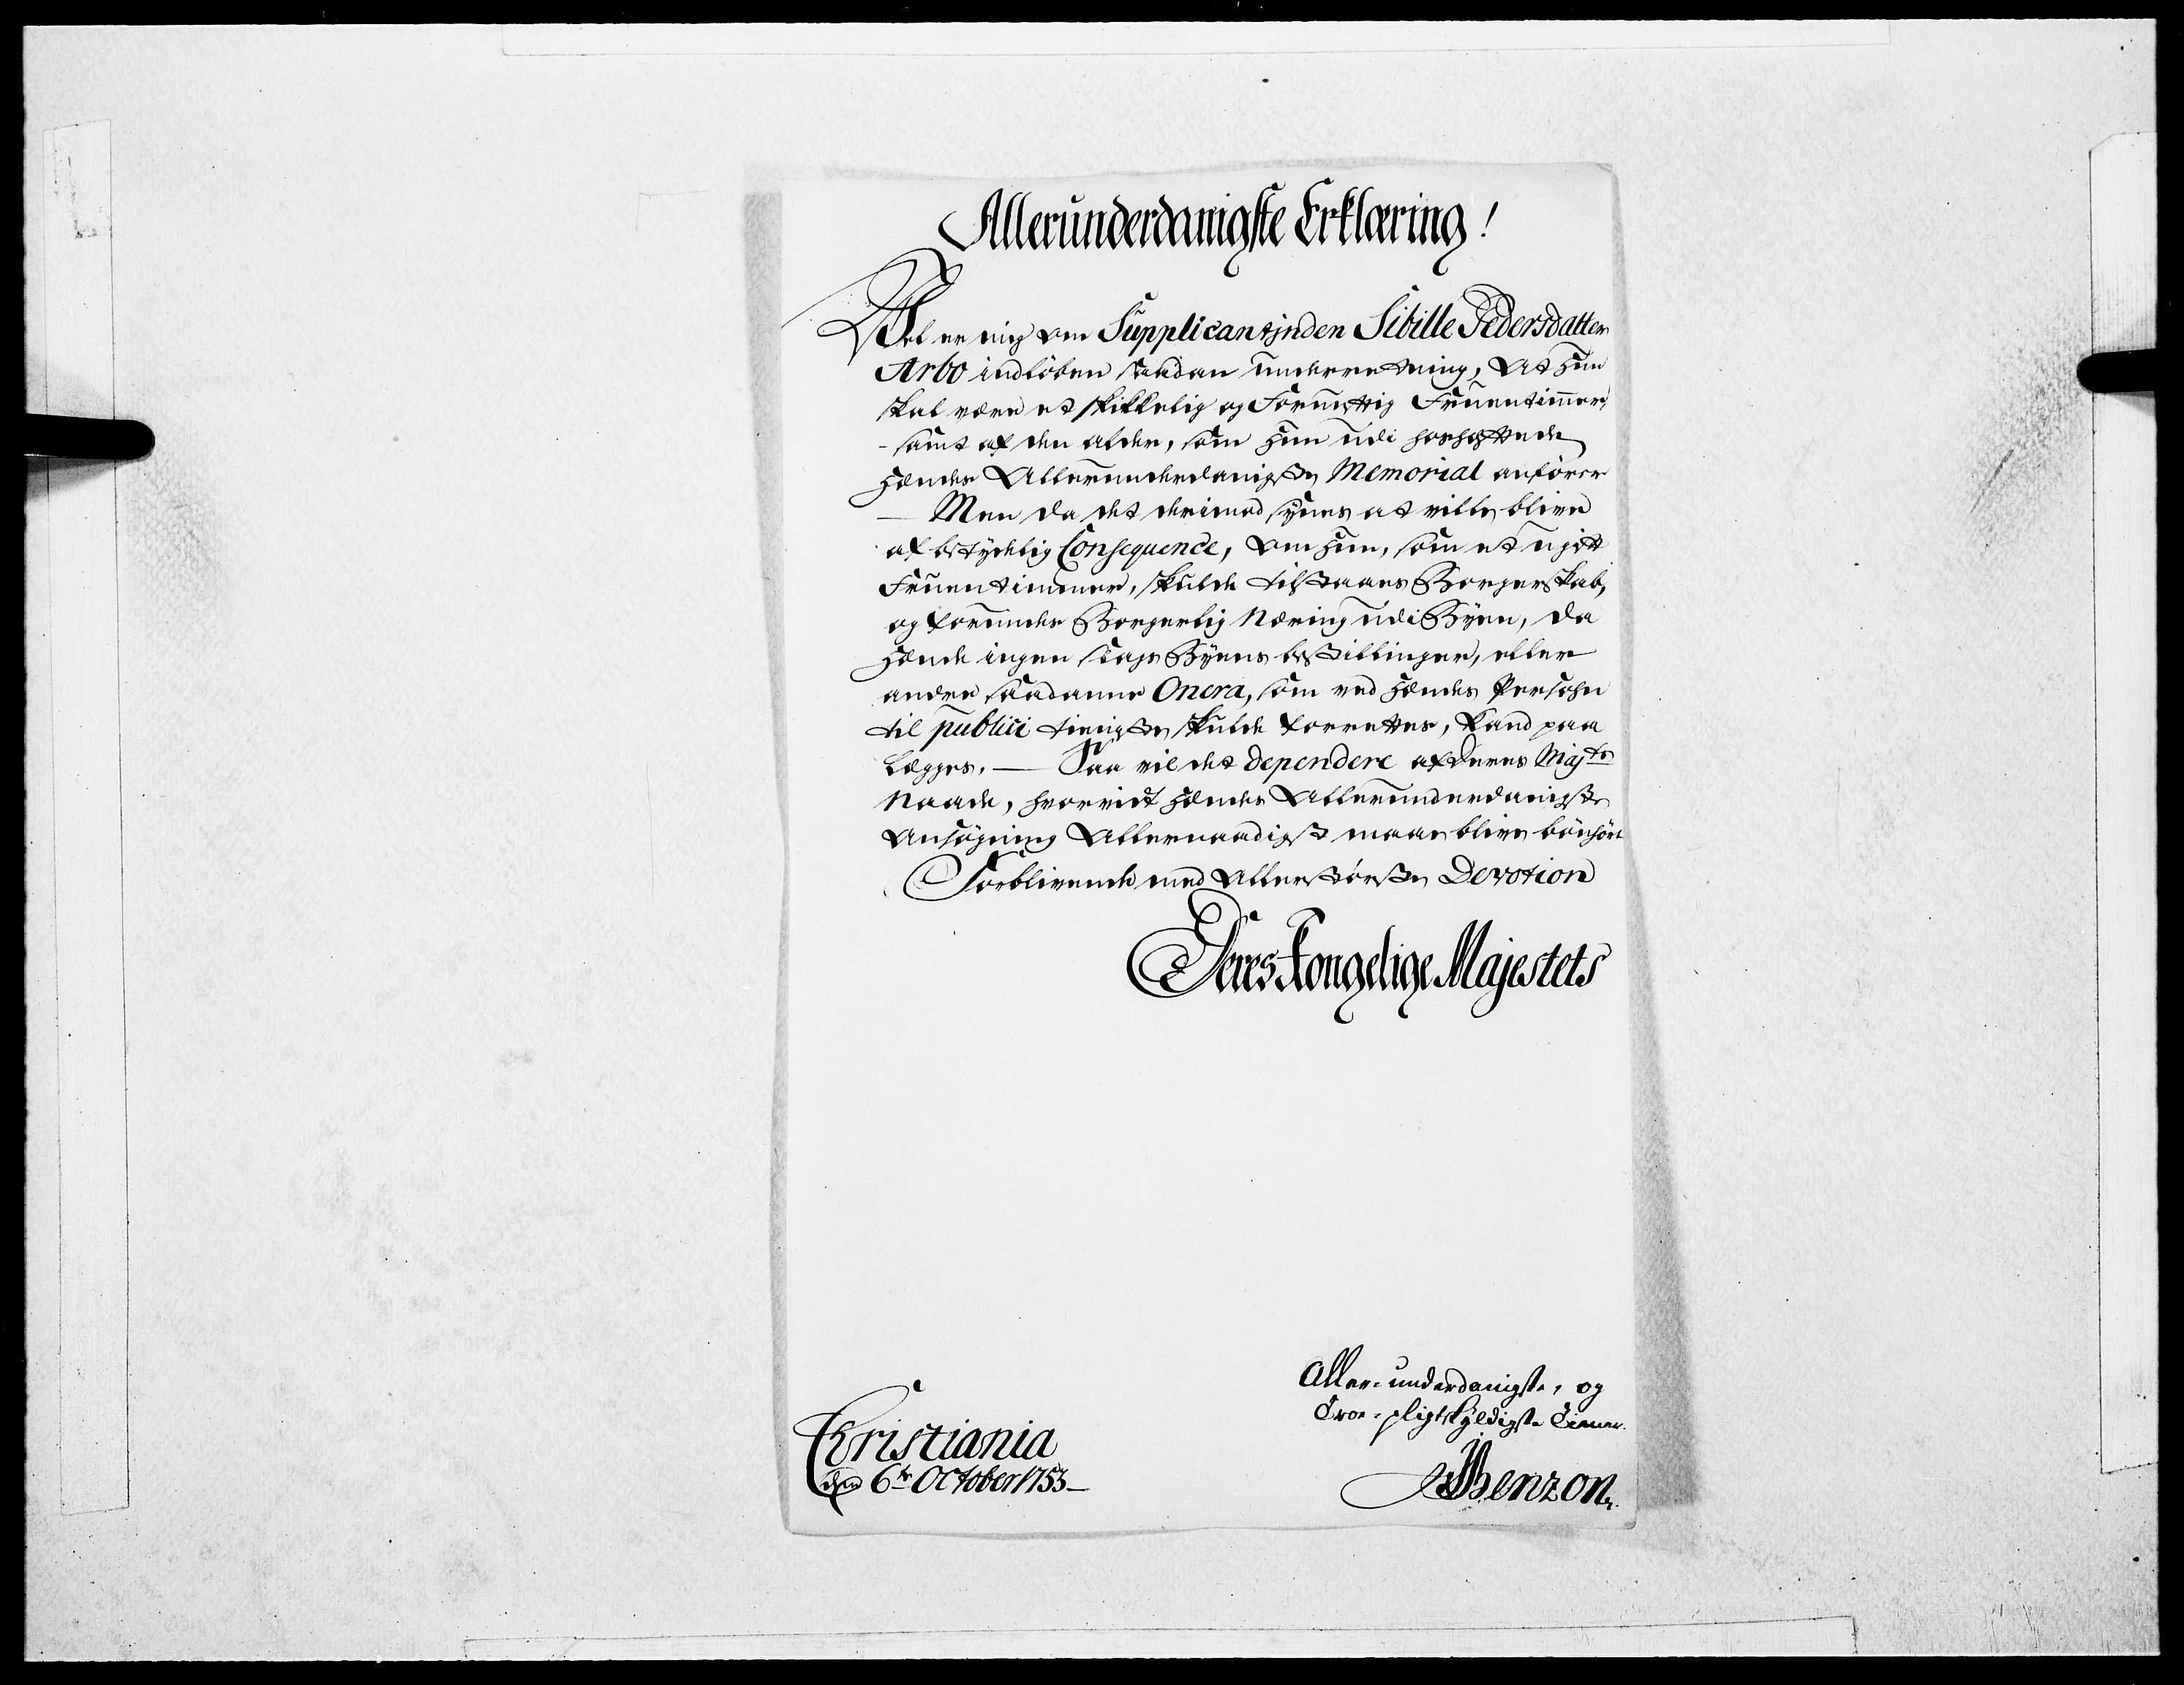 Allerunderdanigste Erklæring!
Vel er mig om Supplicantinden Sibille Pedersdatter
Arbo indløben saadan underretning, At hun
skal være et skikkelig og fornuftig Fruentimmer,
samt af den alder, som hun udi hoshæftede
Hendes Allerunderdanigste Memorial anfører
— Men da det derimod synes at ville blive
af betydelig Consequence, om hun, som et ugift
Fruentimmer, skulde tilstaaes Borgerskab,
og forundes Borgerlig Næring udi Byen, da
hende ingen slags Byens bestillinger, eller
andre saadanne Onera, som ved hendes Persohn
til publici tieniste skulde forrettes, kand paa
Lægges. — Saa vil det dependere af Deres Majts
Naade, hvorvidt hendes Allerunderdanigste
Ansøgning Allernaadigst maae blive bønhørt
Forblivende med Allerstørste Devotion
Deres Kongelige Majestets
Aller-underdanigste, og
Troe-pligtskyldigste Tiener.
Christiania
den 6te October 1753-
Benzon